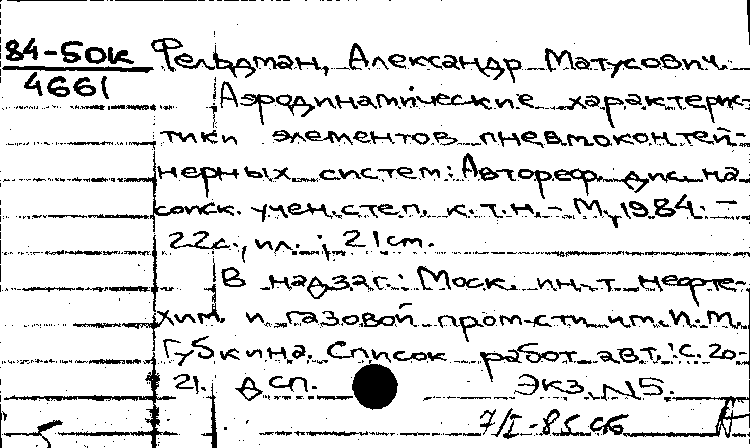 84-50к Фельдман, Александр Матусович.
4661
Аэродинамические характерис-
тики элементов пневмоконтей-
нерных систем: Автореф. дис. на
соиск. учен. степ. к.т.н. - М, 1984. -
22с., ил.; 21см.
В надзаг.: Моск. ин-т нефте-
хим. и газовой пром-сти им. И.М.
Губкина. Список работ авт.: с. 20-
21. ДСП. Экз. N5.
7/I-85 сб